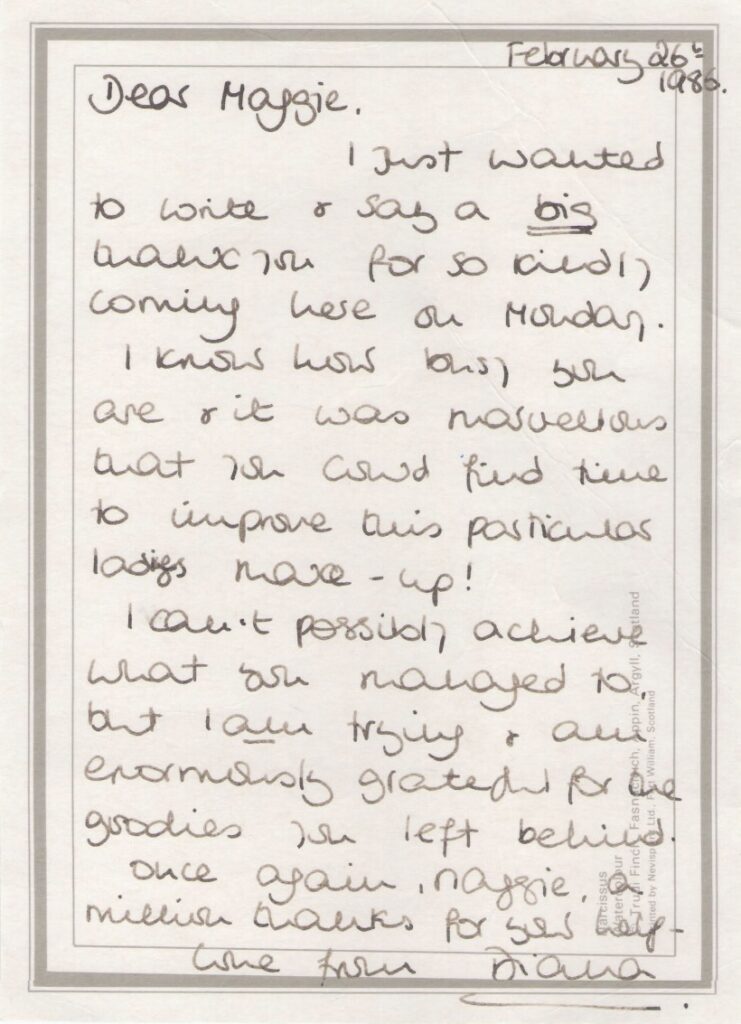 February 26th
1986.
Dear Maggie,
I just wanted
to write & say a big
thank you for so kindly
coming here on Monday.
I know how busy you
are & it was marvellous
that you could find time
to improve this particular
ladies make-up!
I can't possibly achieve
what you managed to,
but I am trying & am
enormously grateful for the
goodies you left behind.
Once again, Maggie, a
million thanks for your help-
love from Diana
Narcissus
Watercolour
Trudi Finch, Appin, Argyll, Scotland
Printed by Nevisprint Ltd., Fort William, Scotland